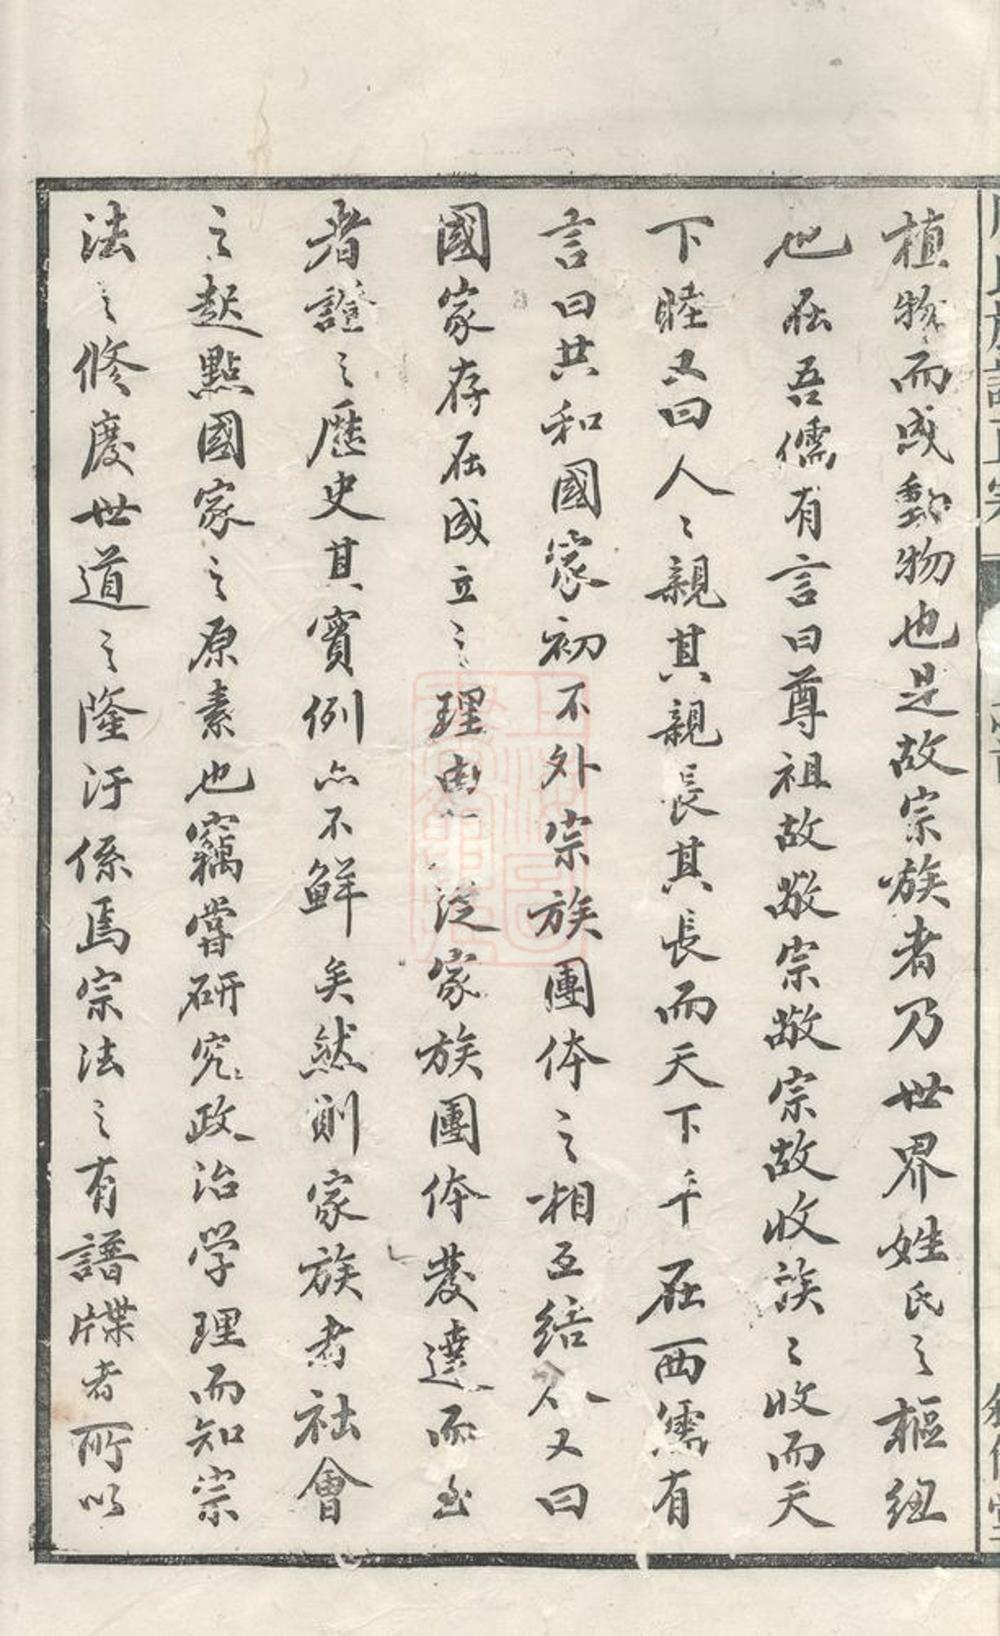 植物而成動物也是故宗族者乃世界姓氏之樞紐
也在吾儒有言曰尊祖故敬宗敬宗故收族〻收而天
下睦又曰人〻親其親長其長而天下平在西儒有
言曰共和國家初不外宗族團体之相互结人又曰
國家存在成立之理由 從家族團体發達而出
者證之歷史其實例亦不鮮矣然則家族者社會
之起點國家之原素也竊嘗研究政治学理而知宗
法之修廢世道之隆汙係焉宗法之有譜牒者所以